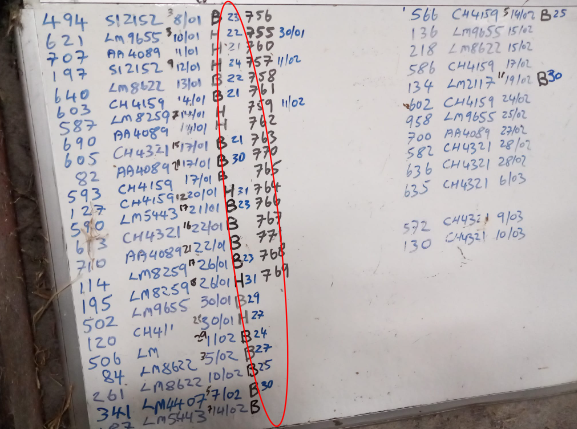 494 SI2152 3 8/01 B 23 756
621 LM9655 5 10/01 H 22 755 30/01
707 AA4089 11/01 H 21 760
197 SI2152 9 12/01 H 24 757 11/02
640 LM8622 13/01 B 22 758
603 CH4159 14/01 B 21 761
587 LM8259 14/01 H 759 11/02
690 AA4089 14/01 H 762
605 CH4321 15 17/01 B 21 763
82 AA4089 17/01 B 30 770
593 CH4159 17/01 B 765
127 CH4159 12 20/01 H 31 764
590 LM5443 21/01 B 23 766
CH4321 16 22/01 B 767
710 AA4089 21 22/01 B 77
114 LM8259 26/01 B 23 768
195 LM8259 26/01 H 31 769
502 LM9655 30/01 B 29
120 CH41 30/01 H 27
506 LM 1/02 B 24
84 LM8622 5/02 B 27
261 LM8622 10/02 B 25
341 LM4407 7/02 B 30
LM5443 14/02 B
566 CH4159 5 14/02 B 25
136 LM9655 15/02
218 LM8622 15/02
586 CH4159 17/02
134 LM2117 11 19/02 B 30
602 CH4159 24/02
958 LM9655 25/02
700 AA4089 27/02
582 CH4321 28/02
636 CH4321 28/02
635 CH4321 6/03
572 CH4321 9/03
130 CH4321 10/03